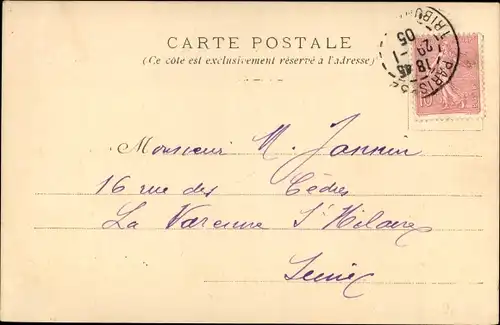 CARTE POSTALE
(Ce côté est exclusivement réservé à l'adresse)
PARIS
18 45
29 -1
05
10
Monsieur M. Jannin
16 rue des Cèdres
La Varenne St Hilaire
Seine